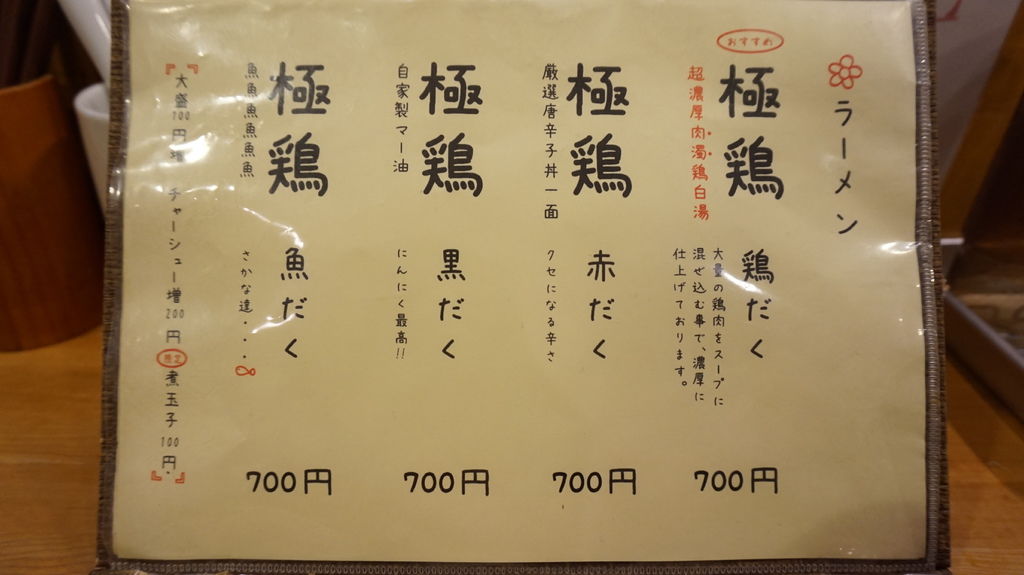 ラーメン
おすすめ
極鶏
鶏だく
超濃厚肉濁鶏白湯
大量の鶏肉をスープに
混ぜ込む事で、濃厚に
仕上げております。
700円
極鶏
赤だく
厳選唐辛子丼一面
クセになる辛さ
700円
極鶏
黒だく
自家製マー油
にんにく最高!!
700円
極鶏
魚だく
魚魚魚魚魚魚
さかな達・・・
700円
大盛100円増 チャーシュー増200円 限定 煮玉子100円